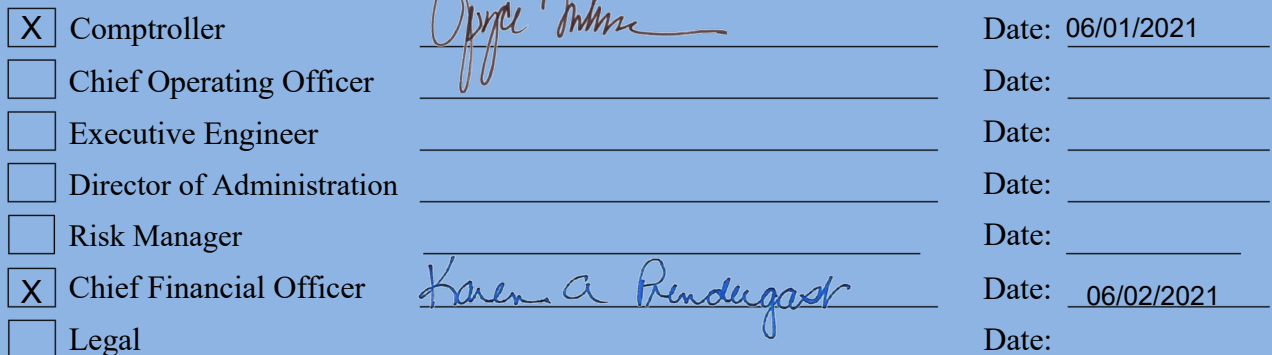 X Comptroller Date: 06/01/2021
Chief Operating Officer Date:
Executive Engineer Date:
Director of Administration Date:
Risk Manager Date:
X Chief Financial Officer Karen A Pendergast Date: 06/02/2021
Legal Date: